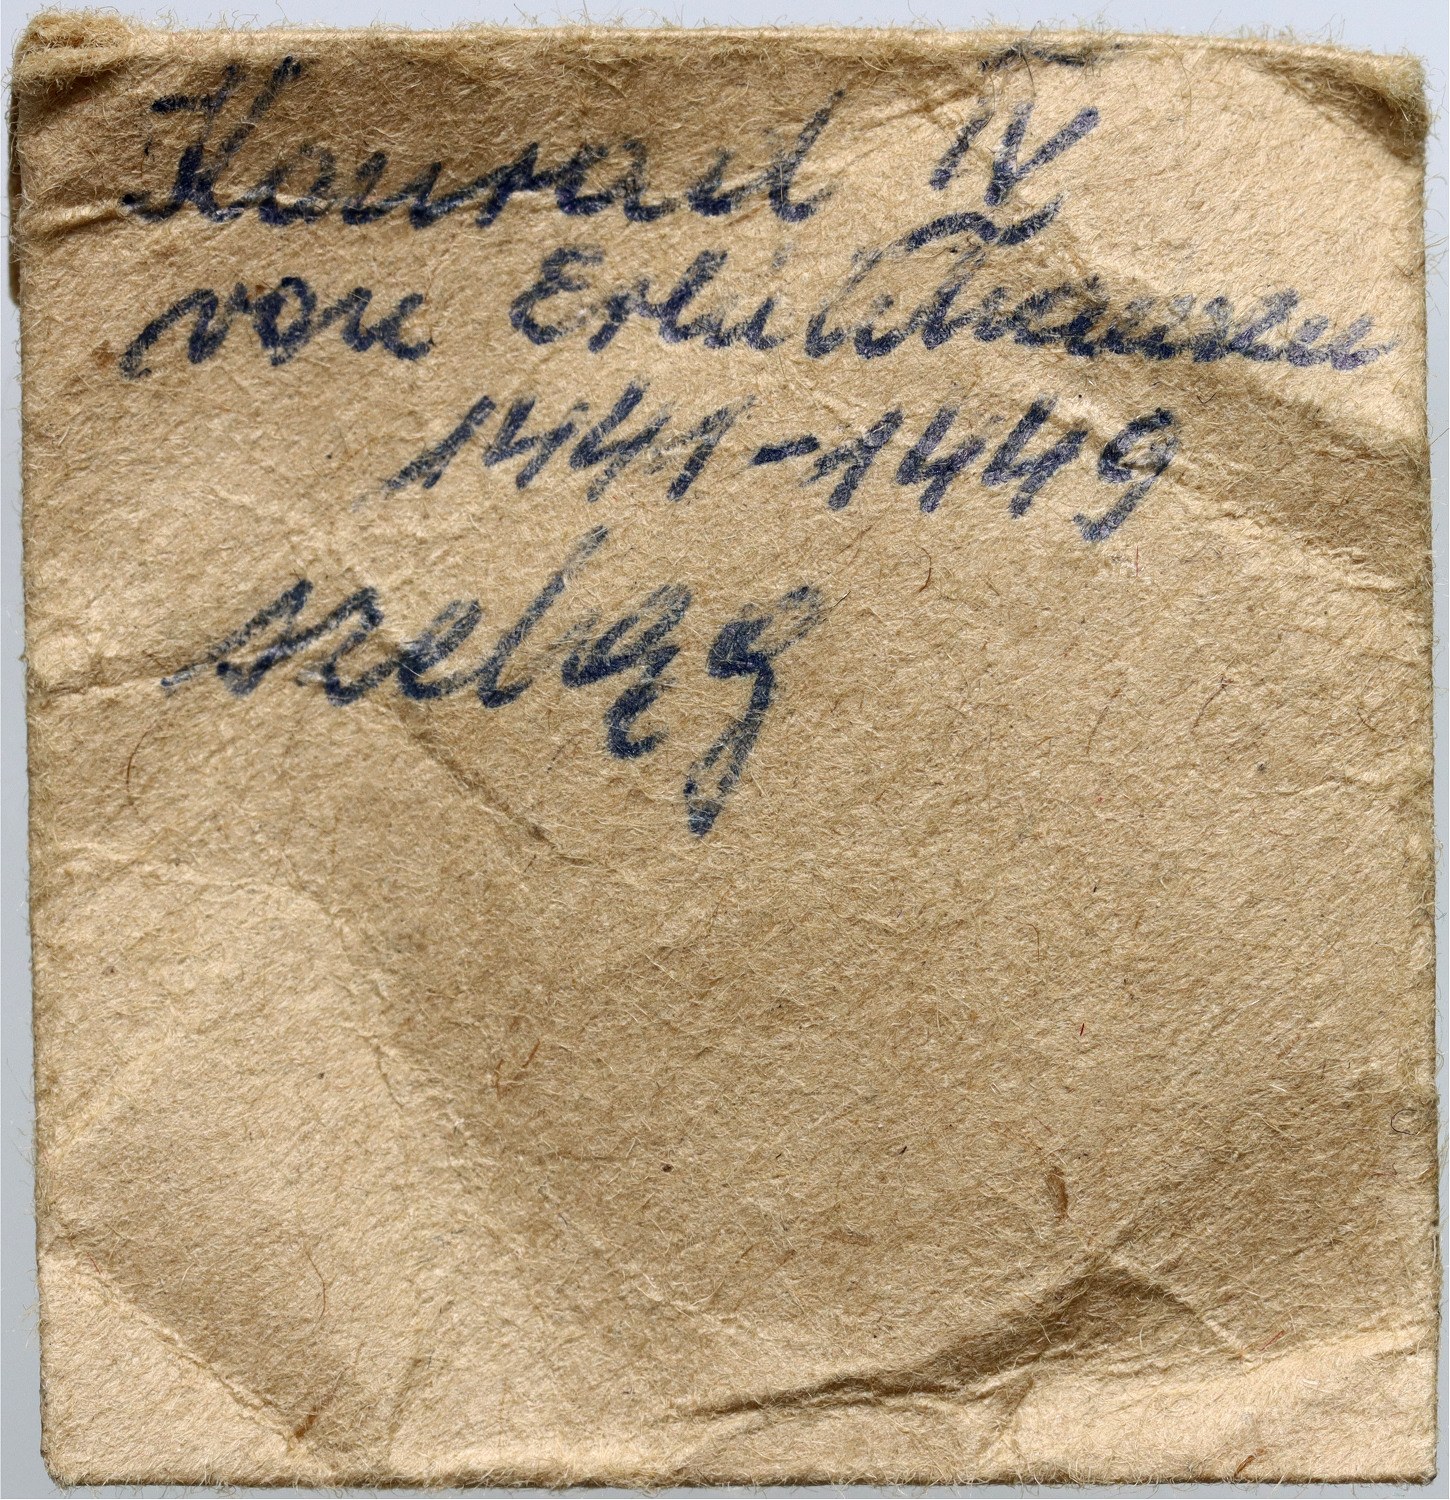 Konrad IV
von Erlichhausen
1441-1449
szeląg